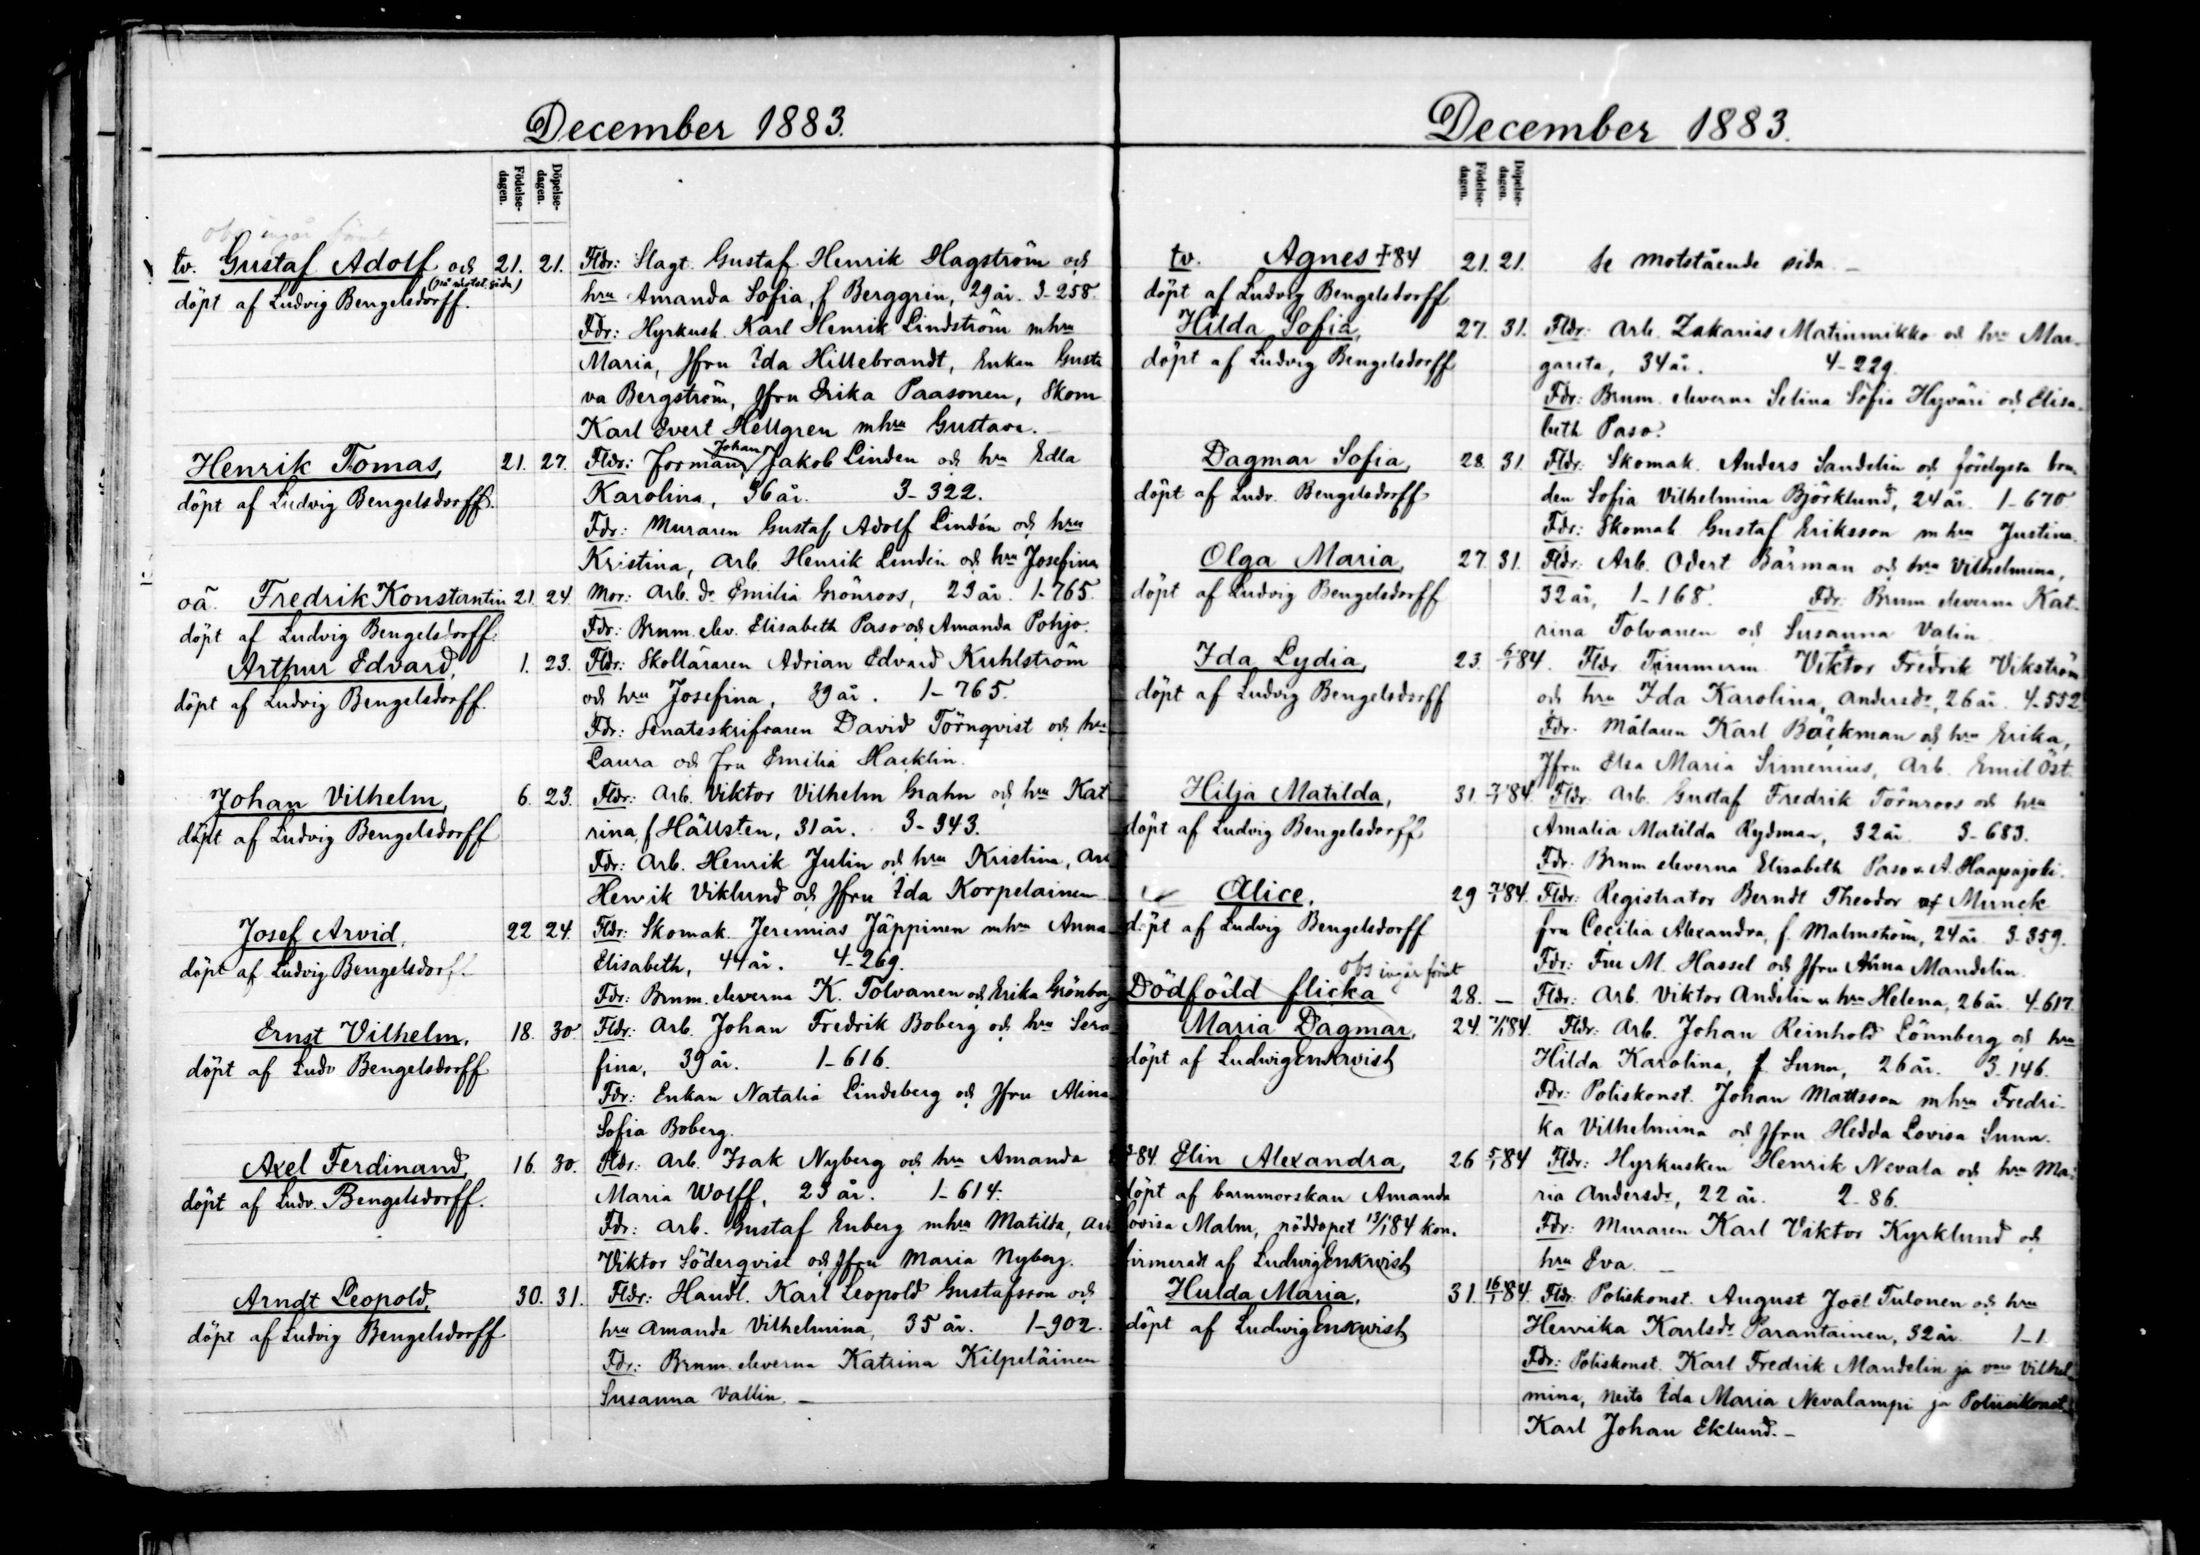 December 1883.
Födelse-dagen. Döpelse-dagen.
obs ingår förut
tv. Gustaf Adolf och 21. 21. Fldr: Slagt. Gustaf Henrik Hagström och
(på motst. sida)
döpt af Ludvig Bengelsdorff. hru Amanda Sofia, f Berggrén, 29 år. 3-258.
Fdr: Hyrkusk. Karl Henrik Lindström m hru
Maria, Jfru Ida Hillebrandt, Enkan Gusta
va Bergström, Jfru Erika Paasonen, Skom
Karl Evert Hellgren m hru Gustava. —
Johan
Henrik Tomas, 21. 27. Fldr: Forman Jakob Linden och hru Edla
döpt af Ludvig Bengelsdorff. Karolina, 36 år. 3-322.
Fdr: Muraren Gustaf Adolf Lindén och hru
Kristina, Arb. Henrik Lindén och hru Josefina
oä. Fredrik Konstantin 21. 24. Mor: Arb. dr Emilia Grönroos, 23 år. 1-765.
döpt af Ludvig Bengelsdorff. Fdr: Brnm. elev. Elisabeth Paso och Amanda Pohjo.
Arthur Edvard, 1. 23. Fldr: Skolläraren Adrian Edvard Kuhlström
döpt af Ludvig Bengelsdorff. och hru Josefina, 39 år. 1-765.
Fdr: Senatsskrifvaren David Törnqvist och hru
Laura och fru Emilia Hacklin.
Johan Vilhelm, 6. 23. Fldr: Arb. Viktor Vilhelm Grahn och hru Kat
döpt af Ludvig Bengelsdorff rina, f Hällsten, 31 år. 3-343.
Fdr: Arb. Henrik Julin och hru Kristina, Arb
Henrik Viklund och Jfru Ida Korpelainen
Josef Arvid, 22 24. Fldr: Skomak. Jeremias Jäppinen m hru Anna
döpt af Ludvig Bengelsdorff. Elisabeth, 44 år. 4-269.
Fdr: Brnm. eleverna K. Tolvanen och Erika Grönberg
Ernst Vilhelm, 18. 30. Fldr: Arb. Johan Fredrik Boberg och hru Sera
döpt af Ludv Bengelsdorff fina, 39 år. 1-616.
Fdr: Enkan Natalia Lindeberg och Jfru Alina
Sofia Boberg.
Axel Ferdinand, 16. 30. Fldr: Arb. Isak Nyberg och hru Amanda
döpt af Ludv. Bengelsdorff. Maria Wolff, 23 år. 1-614.
Fdr: Arb. Gustaf Enberg m hru Matilda, Arb
Viktor Söderqvist och Jfru Maria Nyberg.
Arndt Leopold, 30. 31. Fldr: Handl. Karl Leopold Gustafsson och
döpt af Ludvig Bengelsdorff hru Amanda Vilhelmina, 35 år. 1-902.
Fdr: Brnm. eleverna Katrina Kilpeläinen
Susanna Vallin. —
December 1883.
Födelse-dagen. Döpelse-dagen.
tv. Agnes † 84 21. 21. Se motstående sida —
döpt af Ludvig Bengelsdorff
Hilda Sofia, 27. 31. Fldr: Arb. Zakarias Matinmikko och hru Mar-
döpt af Ludvig Bengelsdorff gareta, 34 år. 4-229.
Fdr: Brnm. eleverna Selina Sofia Hyväri och Elisa-
beth Paso.
Dagmar Sofia, 28. 31. Fldr: Skomak. Anders Sandelin och förelysta bru
döpt af Ludv. Bengelsdorff den Sofia Vilhelmina Björklund, 24 år. 1-670
Fdr: Skomak Gustaf Eriksson m hru Justina.
Olga Maria, 27. 31. Fldr: Arb. Odert Bärman och hru Vilhelmina,
döpt af Ludvig Bengelsdorff 32 år, 1-168. Fdr: Brnm eleverna Kat-
rina Tolvanen och Susanna Valin
Ida Lydia, 23. 6/1 84. Fldr. Timmerm Viktor Fredrik Vikström
döpt af Ludvig Bengelsdorff och hru Ida Karolina, Andersdr, 26 år. 4-552
Fdr. Målaren Karl Bäckman och hru Erika,
Jfru Elsa Maria Simenius, Arb. Emil Öst.
Hilja Matilda, 31. 7/1 84. Fldr: Arb. Gustaf Fredrik Törnroos och hru
döpt af Ludvig Bengelsdorff Amalia Matilda Rydman, 32 år 3-683.
Fdr: Brnm eleverna Elisabeth Paso o. A. Haapajoki.
Alice, 29 7/1 84. Fldr: Registrator Berndt Theodor af Munck
döpt af Ludvig Bengelsdorff fru Cecilia Alexandra, f. Malmström, 24 år 3.359.
Fdr: Fru M. Hassel och Jfru Anna Mandelin.
obs ingår förut
Dödfödd flicka 28. — Fldr: Arb. Viktor Andelin o. hru Helena, 26 år. 4-617.
Maria Dagmar, 24. 7/1 84. Fldr: Arb. Johan Reinhold Lönnberg och hru
döpt af Ludwig Enkwist Hilda Karolina, f Sunn, 26 år. 3-146.
Fdr: Poliskonst. Johan Mattsson m hru Fredri-
ka Vilhelmina och Jfru Hedda Lovisa Sunn.
84. Elin Alexandra, 26 5/1 84 Fldr: Hyrkusken Henrik Nevala och hru Ma-
döpt af barnmorskan Amanda ria Andersdr, 22 år. 2-86.
Lovisa Malm, nöddopet 13/1 84 kon- Fdr: Muraren Karl Viktor Kyrklund och
firmeradt af Ludwig Enkwist hru Eva. —
Hulda Maria, 31. 16/1 84. Fldr: Poliskonst. August Joël Tulonen och hru
döpt af Ludwig Enkwist Henrika Karlsdr Parantainen, 32 år. 1-1.
Fdr: Poliskonst. Karl Fredrik Mandelin ja vmo Vilhel
mina, Neito Ida Maria Nevalampi ja Poliisikonst.
Karl Johan Eklund. —